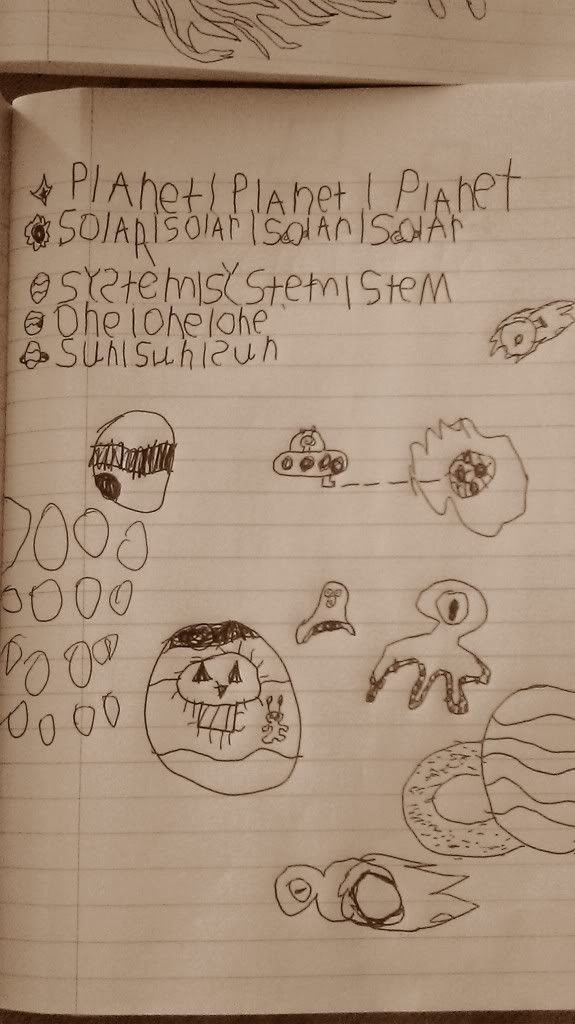 PlAnet|PlAnet|PlAnEt
SolAR|SolAr|SolAr|SolAr
SYStem|SYStem|SteM
One|one|one
Sun|Sun|Sun